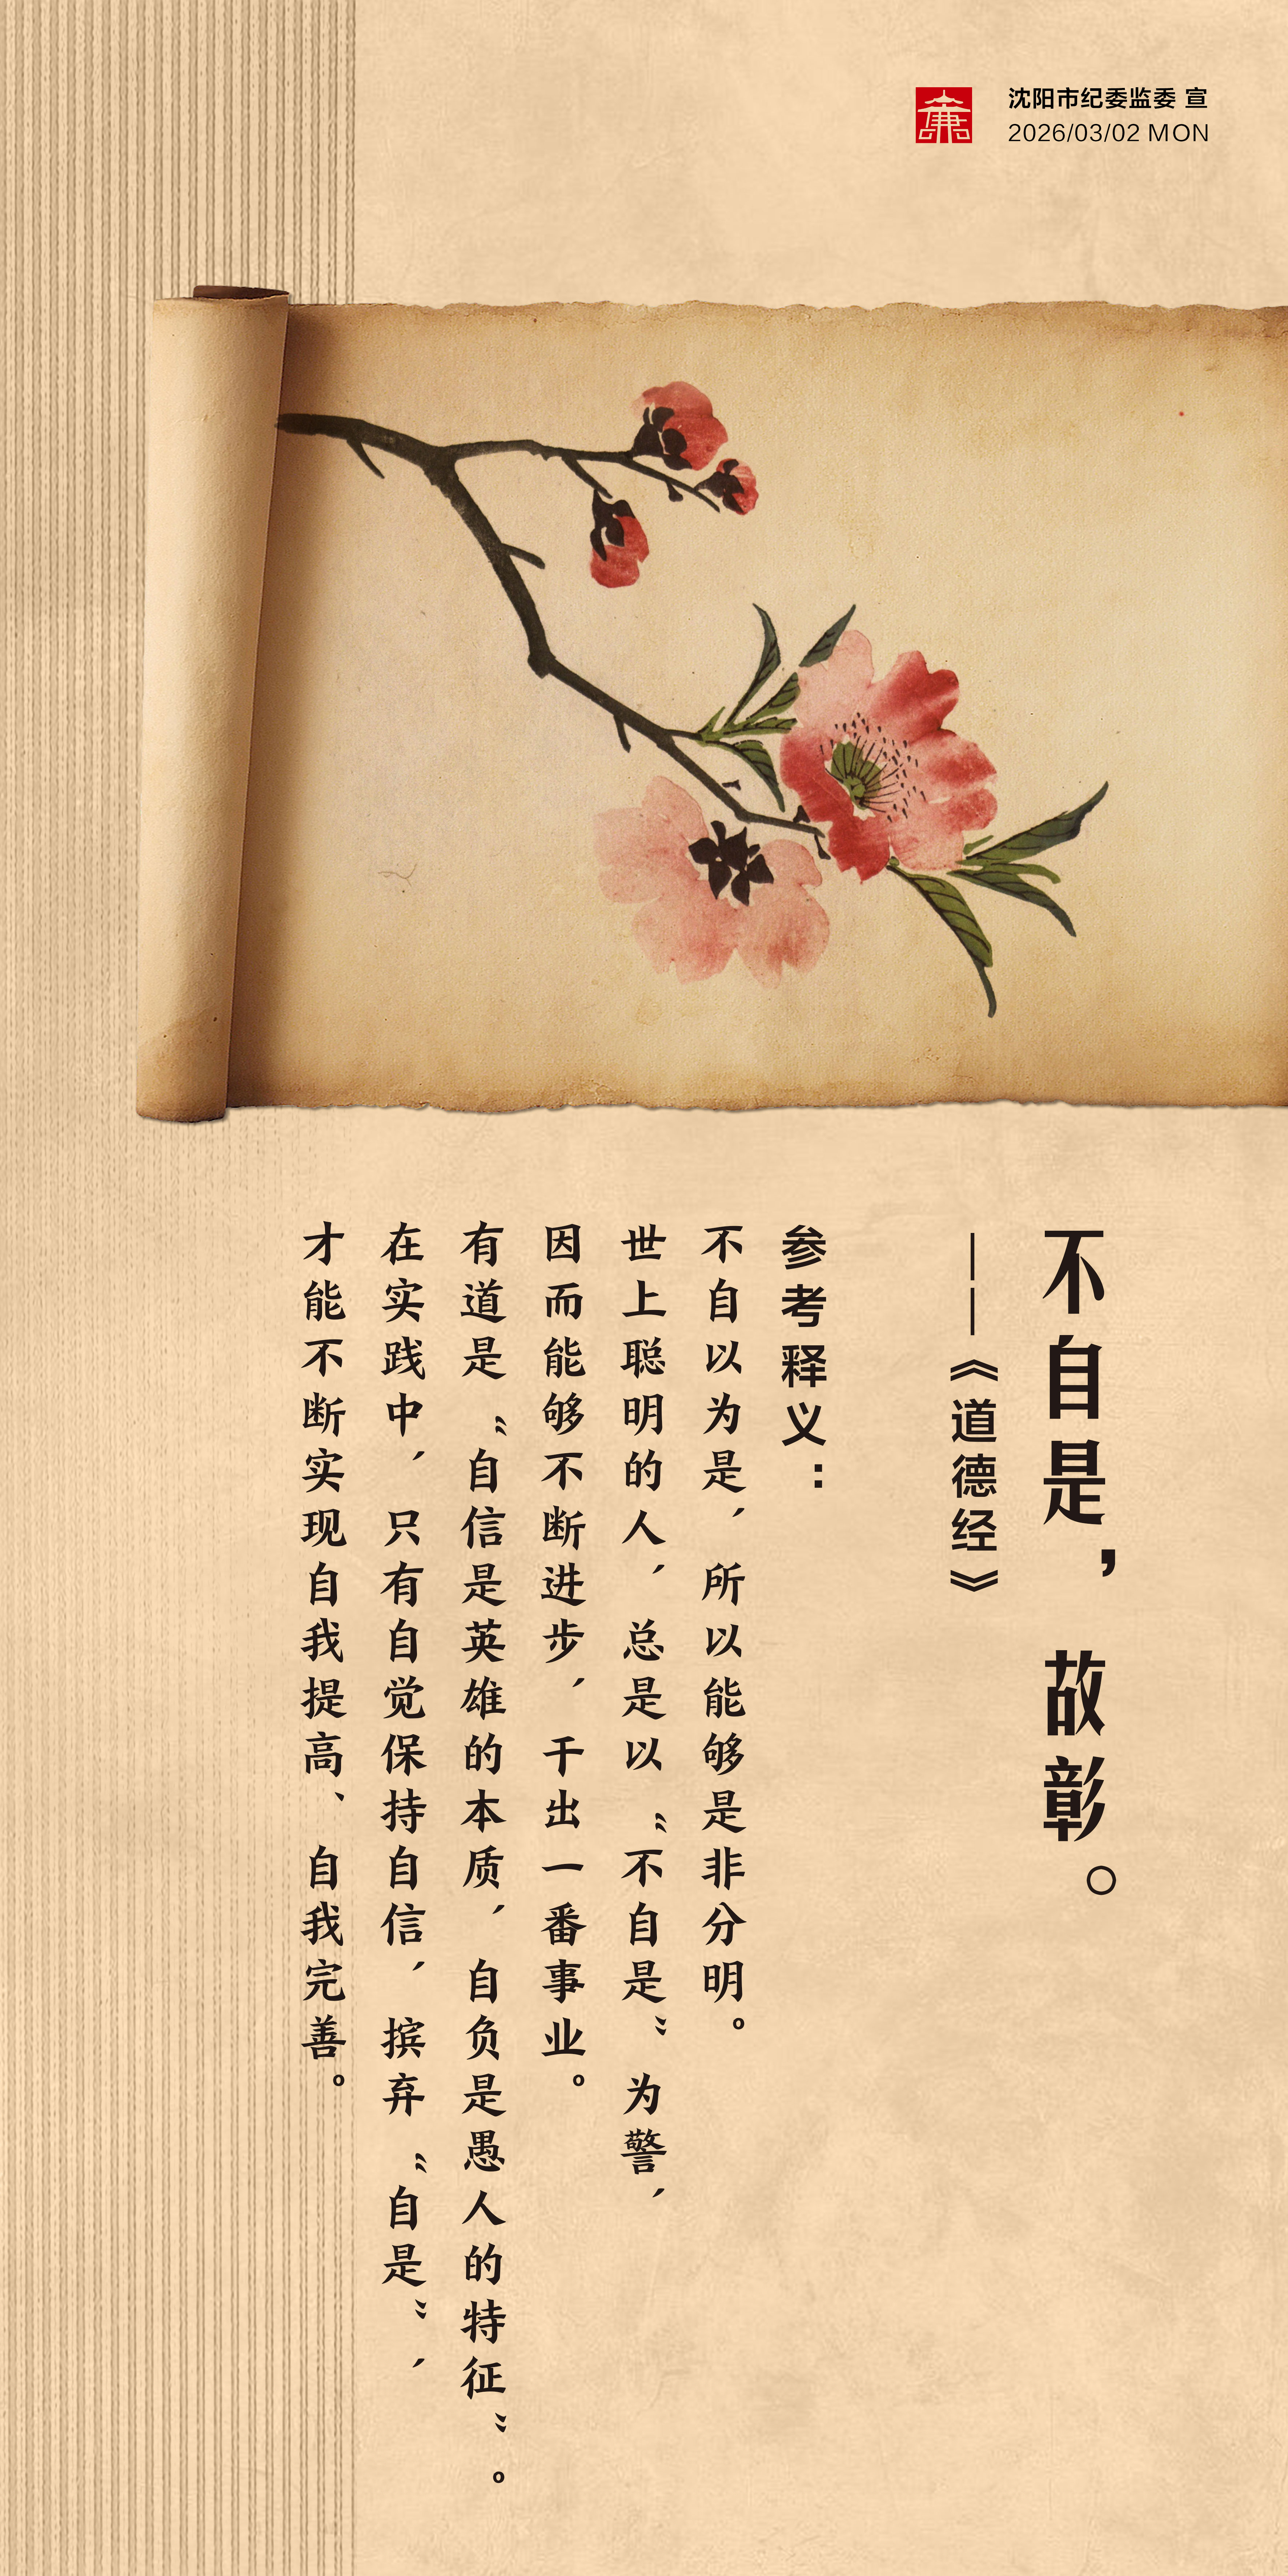 沈阳市纪委监委 宣
2026/03/02 MON
不自是，故彰。
——《道德经》
参考释义：
不自以为是，所以能够是非分明。
世上聪明的人，总是以“不自是”为警，
因而能够不断进步，干出一番事业。
有道是“自信是英雄的本质，自负是愚人的特征”。
在实践中，只有自觉保持自信，摈弃“自是”，
才能不断实现自我提高、自我完善。